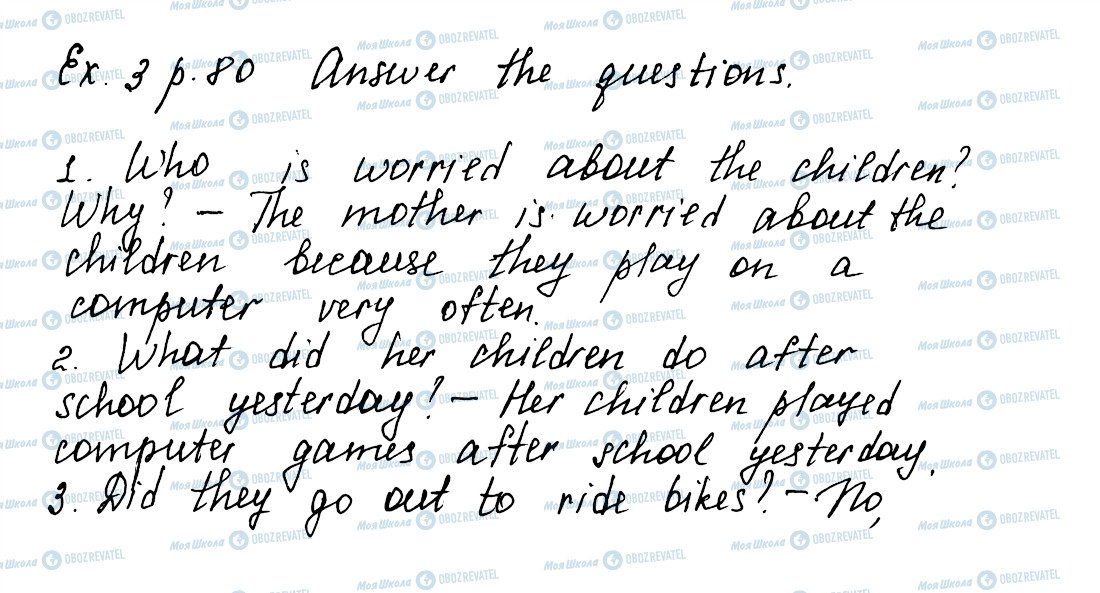 Ex. 3 p. 80 Answer the questions.
1. Who is worried about the children?
Why? – The mother is worried about the
children because they play on a
computer very often.
2. What did her children do after
school yesterday? – Her children played
computer games after school yesterday.
3. Did they go out to ride bikes? – No,